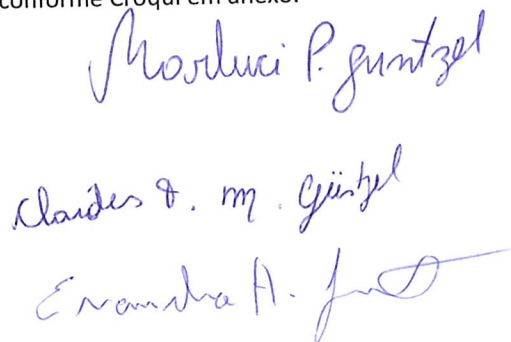 conforme Croqui em anexo.
Marluci P. Guntzel
Claides T. M. Güntzel
Evandra A.